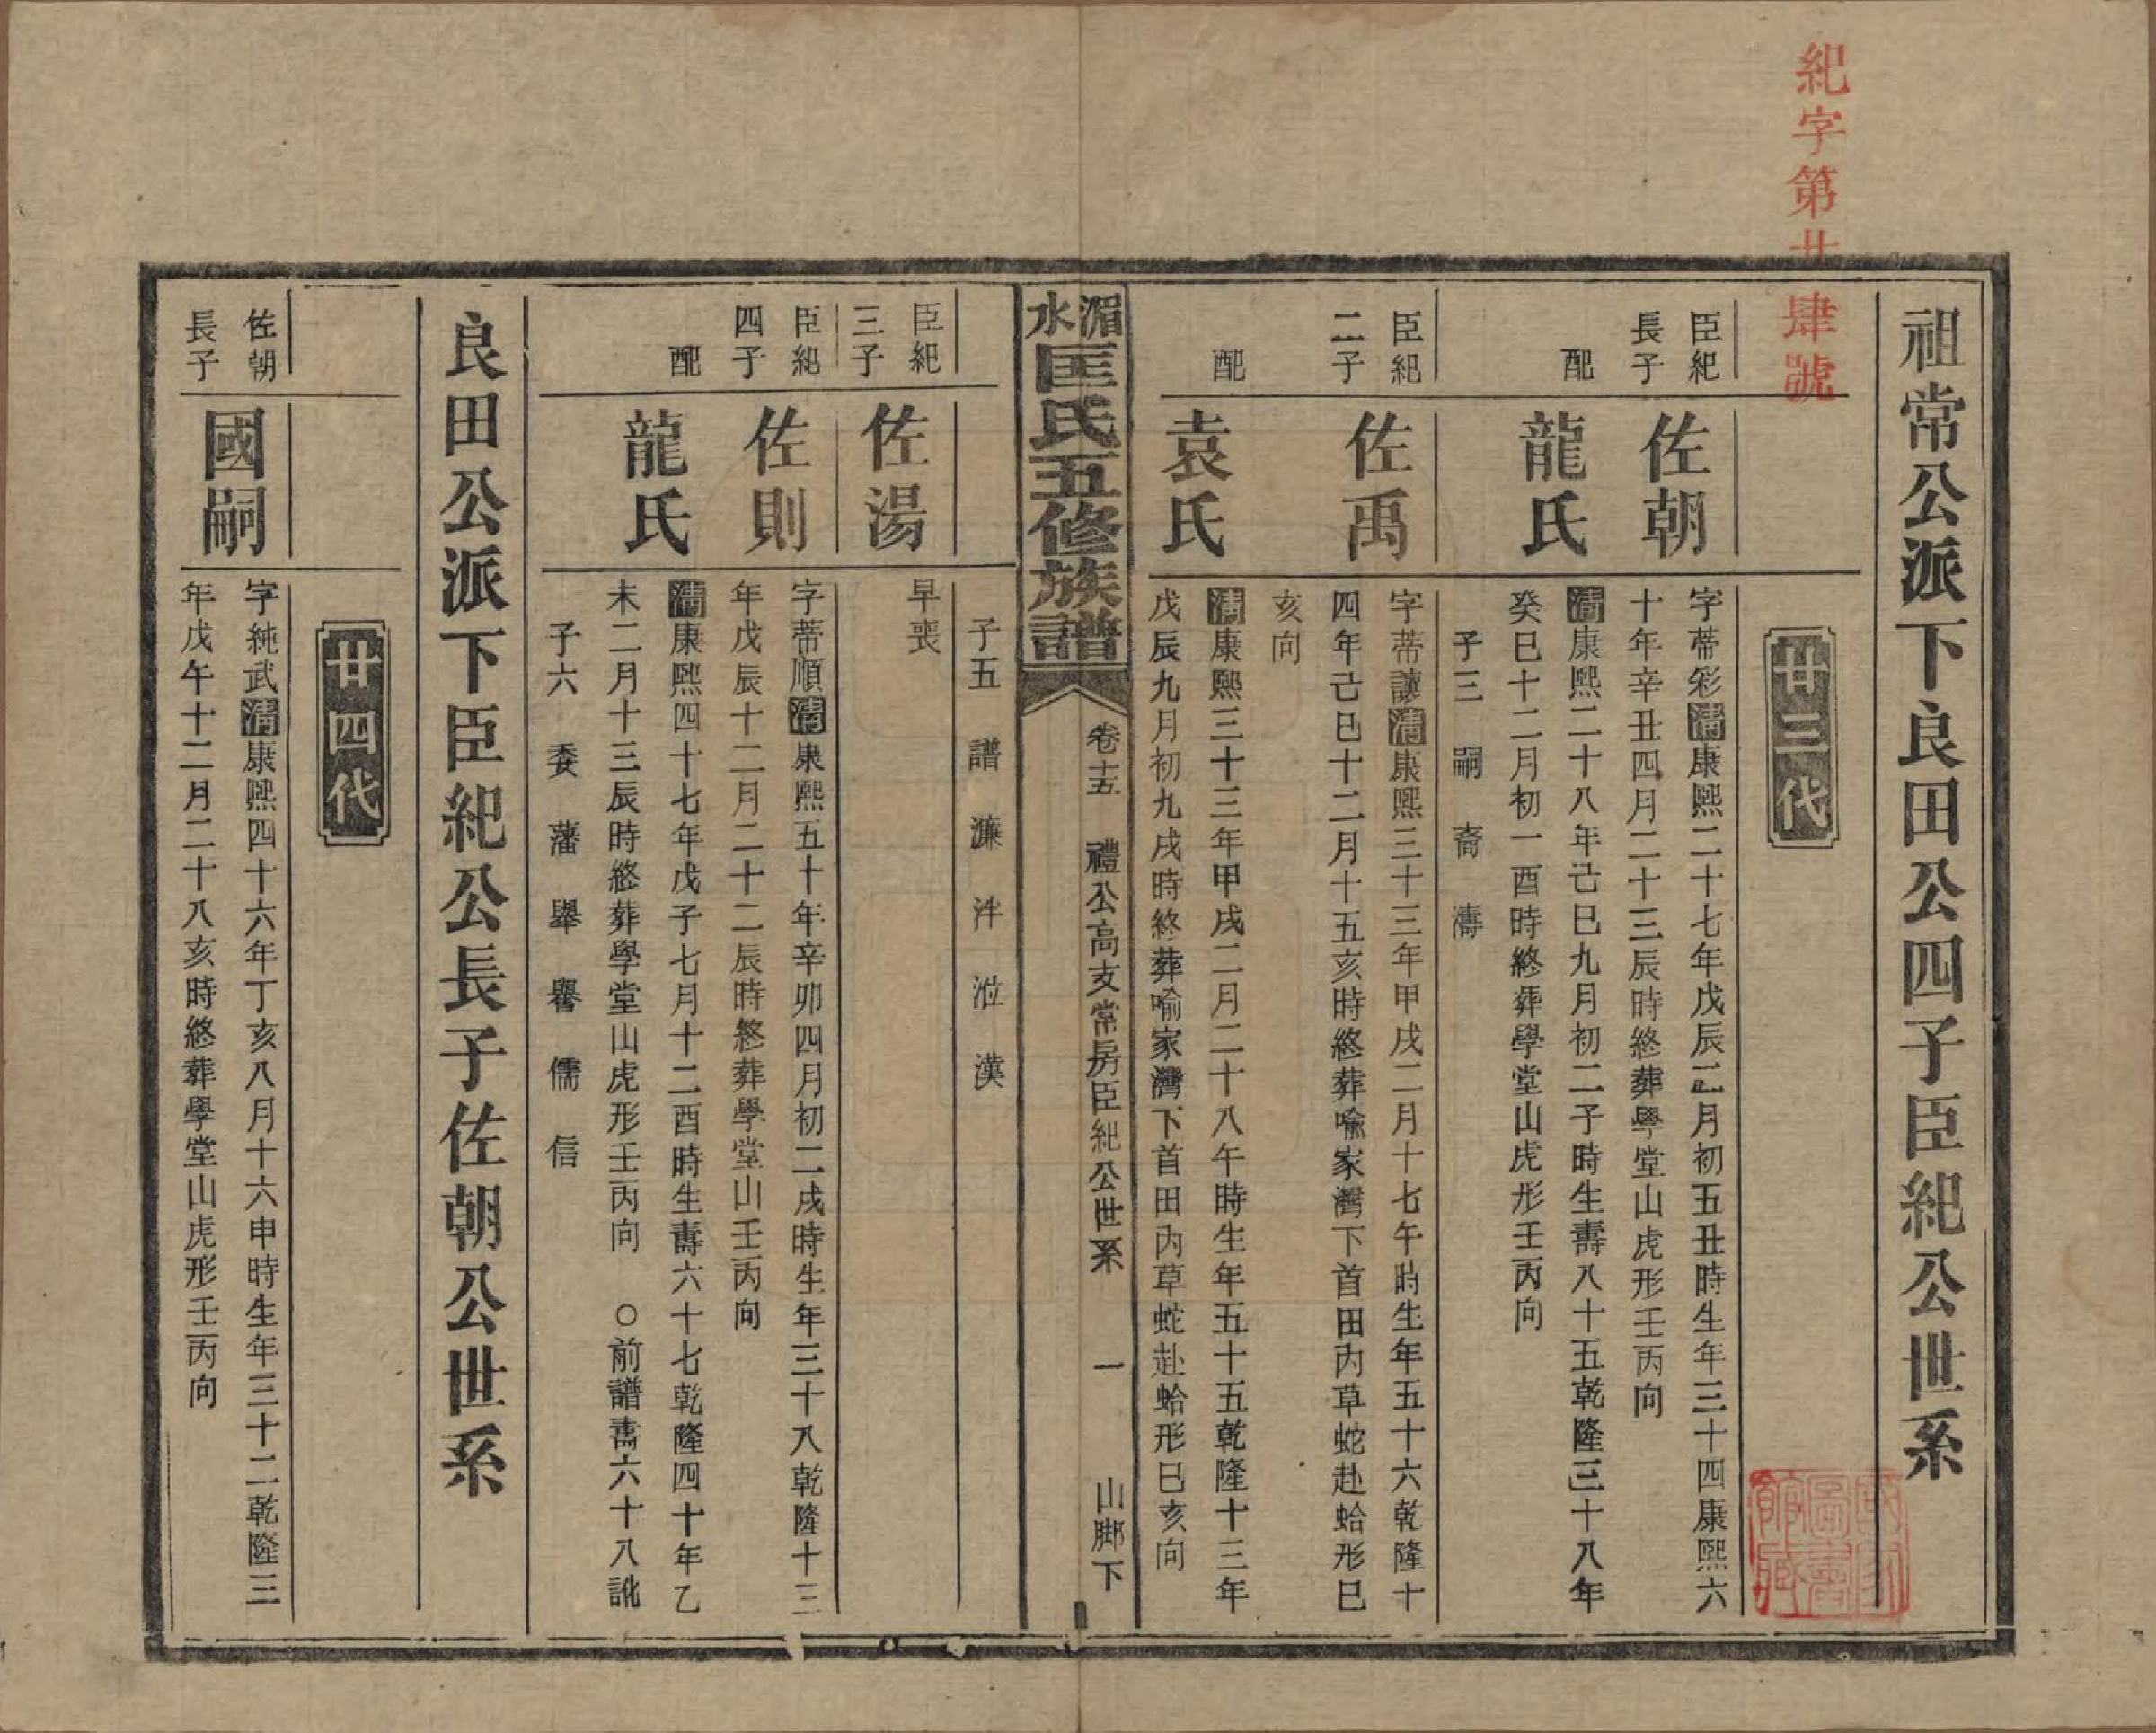 紀字第廿肆號
祖常公派下良田公四子臣紀公世系
廿三代
臣紀
長子
佐朝
字蒂彩清康熙二十七年戊辰二月初五丑時生年三十四康熙六
十年辛丑四月二十三辰時終葬學堂山虎形壬丙向
配
龍氏
清康熙二十八年己巳九月初二子時生壽八十五乾隆三十八年
癸巳十二月初一酉時終葬學堂山虎形壬丙向
子三 嗣 裔 濤
臣紀
二子
佐禹
字蒂謨清康熙三十三年甲戌二月十七午時生年五十六乾隆十
四年己巳十二月十五亥時終葬喻家灣下首田內草蛇赴蛤形巳
亥向
配
袁氏
清康熙三十三年甲戌二月二十八午時生年五十五乾隆十三年
戊辰九月初九戌時終葬喻家灣下首田內草蛇赴蛤形巳亥向
湄水匡氏五修族譜
卷十五 禮公高支常房臣紀公世系 一 山腳下
子五 譜 濂 泮 涖 漢
臣紀
三子
佐湯
早喪
臣紀
四子
佐則
字蒂順清康熙五十年辛卯四月初二戌時生年三十八乾隆十三
年戊辰十二月二十二辰時終葬學堂山壬丙向
配
龍氏
清康熙四十七年戊子七月十二酉時生壽六十七乾隆四十年乙
未二月十三辰時終葬學堂山虎形壬丙向 ○前譜壽六十八訛
子六 委 藩 舉 譽 儒 信
良田公派下臣紀公長子佐朝公世系
廿四代
佐朝
長子
國嗣
字純武清康熙四十六年丁亥八月十六申時生年三十二乾隆三
年戊午十二月二十八亥時終葬學堂山虎形壬丙向
國家圖書館藏